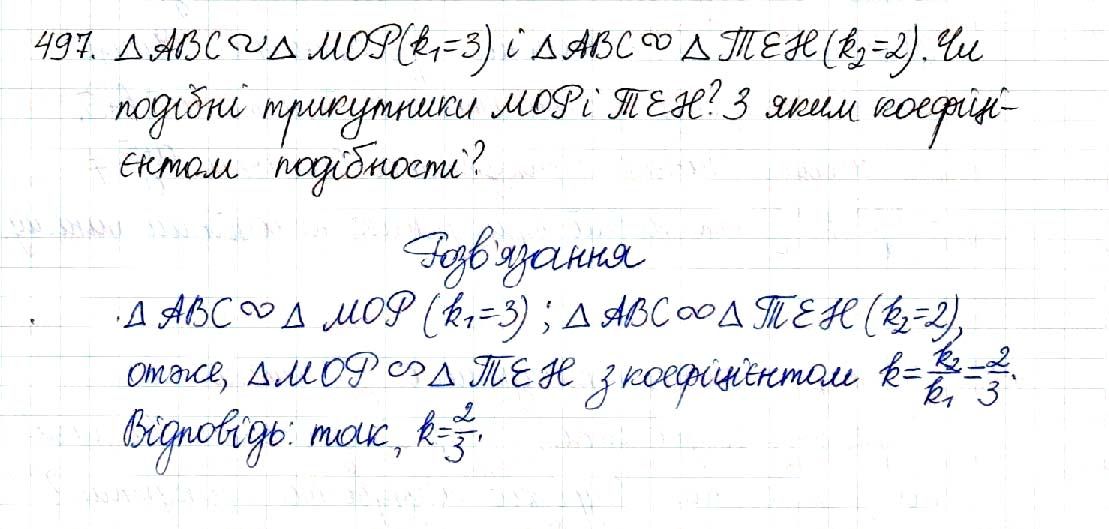 497. △ABC∾△MOP(k₁=3) і △ABC∾△TEH(k₂=2). Чи
подібні трикутники MOP і TEH? З яким коефіці-
єнтом подібності?
Розв'язання
△ABC∾△MOP (k₁=3); △ABC∾△TEH (k₂=2),
отже, △MOP∾△TEH з коефіцієнтом k=k₂/k₁=2/3.
Відповідь: так, k=2/3.